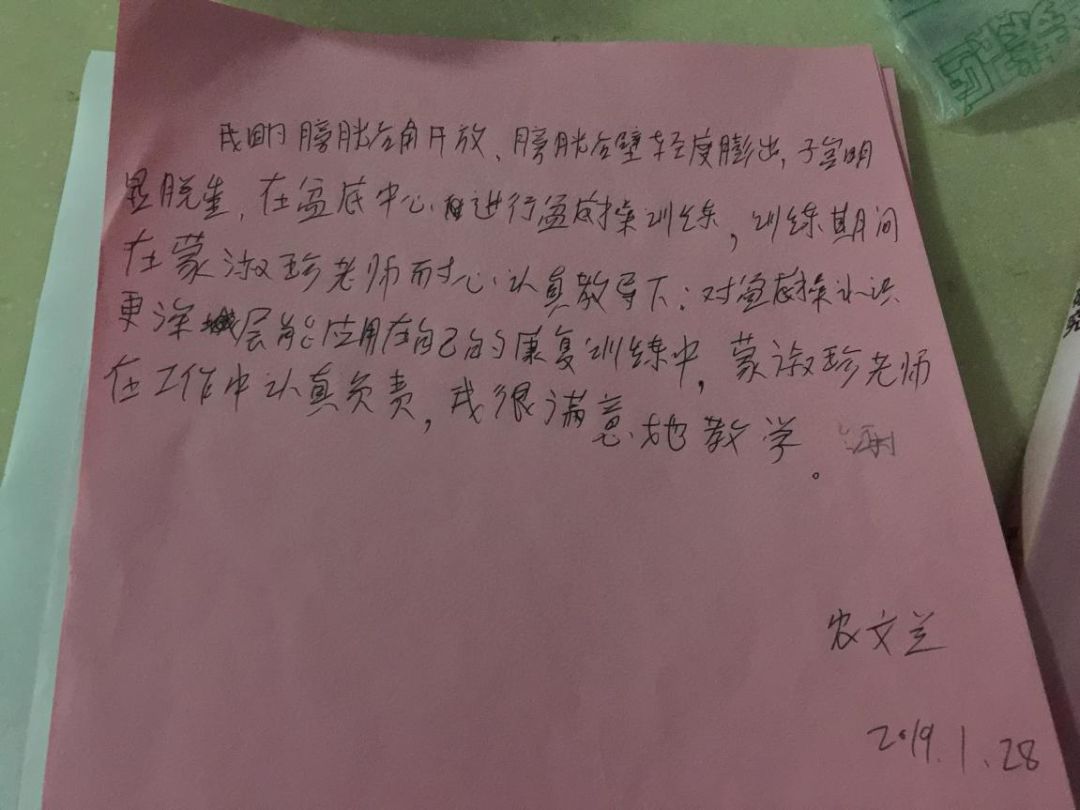 我因膀胱后角开放、膀胱后壁轻度膨出,子宫明
显脱垂,在盆底中心进行盆底操训练,训练期间
在蒙淑珍老师耐心认真教导下:对盆底操认识
更深层能应用在自己的康复训练中,蒙淑珍老师
在工作中认真负责,我很满意她教学。
农文兰
2019.1.28